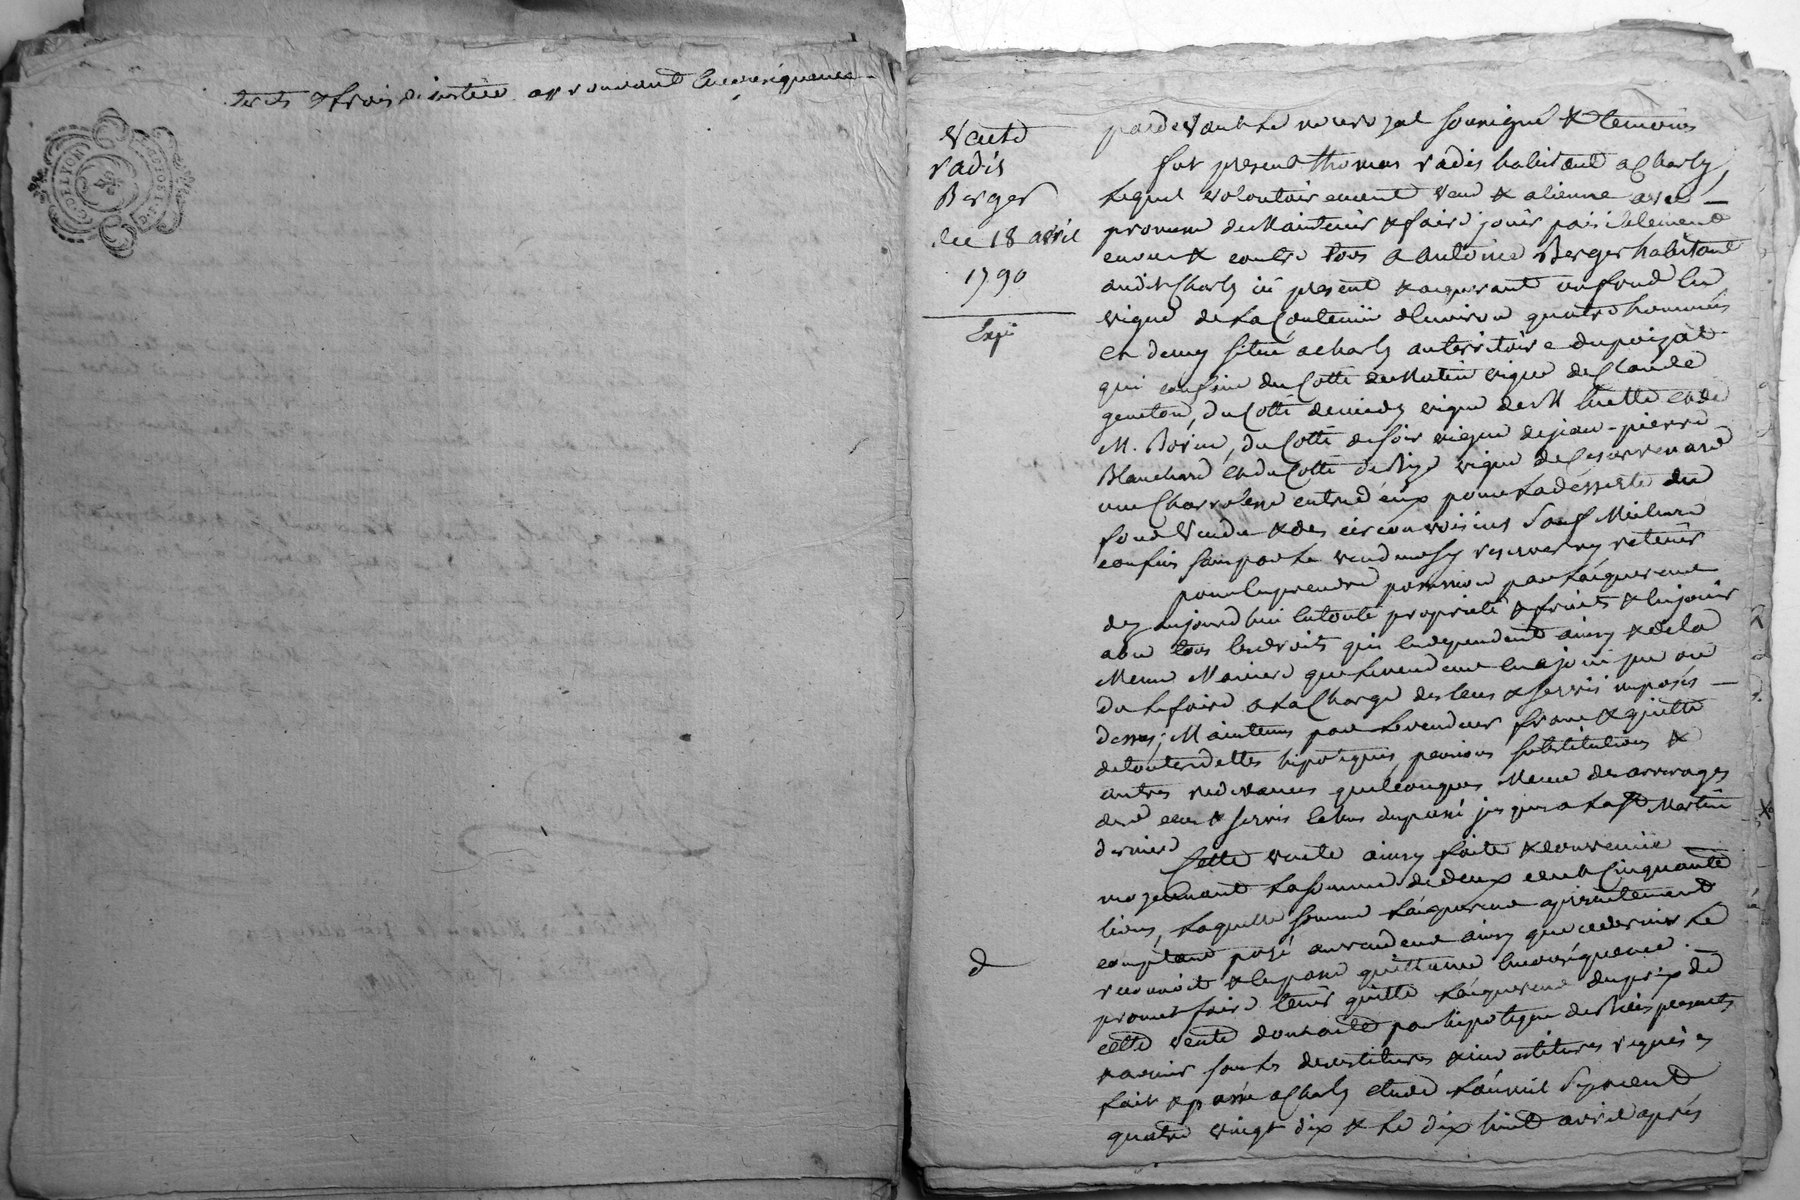 terets & frais de justice approuvant en conséquence
G. DE LYON
Vente
radis
Berger
du 18 avril
1790
Expé
pardevant le no.re royal soussigné & temoins
fut present thomas radis habitant a Charly,
lequel volontairement vend & aliene avec
promesse de Maintenir & faire jouir paisiblement
envers & contre tous a antoine Berger habitant
audit Charly ici present & acquerant un fond en
vigne de la Contenüe d'environ quatre hommées
et demy situé a charly au territoire du poizat
qui confine du Cotté de Matin vigne de Claude
geneton, du Cotté de midy vigne de M et de
M. Borin, du Cotté de soir vigne de jean-pierre
Blanchard et du Cotté de Bize vigne de
une Charriere entre d'eux pour la desserte du
fond vendu & des circonvoisins Sauf Meilleurs
confins sans par le vendeur sy reserver ny retenir
pour en prendre possession par l'acquereur
dez aujourd'hui en toute proprieté & fruits & en jouir
avec tous les droits qui en dependent ainsy & de la
Meme Maniere que le vendeur en a joui pu ou
du le faire a la Charge des cens & servis imposés
dessus; Maintenu par le vendeur franc & quitte
de toutes dettes hipotéques, pensions substitutions &
autres redevances quelconques Meme des arrerages
desd. cens & servis échus du passé jusques a la St Martin
derniere
Cette vente ainsy faite & convenüe
moyennant la somme de deux cent Cinquante
livres, laquelle somme l'acquereur a presentement
comptant payé au vendeur ainsy que ce dernier le
reconnoit & en passe quittance en conséquence.
promet faire tenir quitte l'acquereur du prix de
cette vente dont acte par hipoteque des Biens presents
& avenir sous les devestitures & investitures requises
fait & passé a Charly etude l'an mil Sept cent
quatre vingt dix & le dix huit avril après